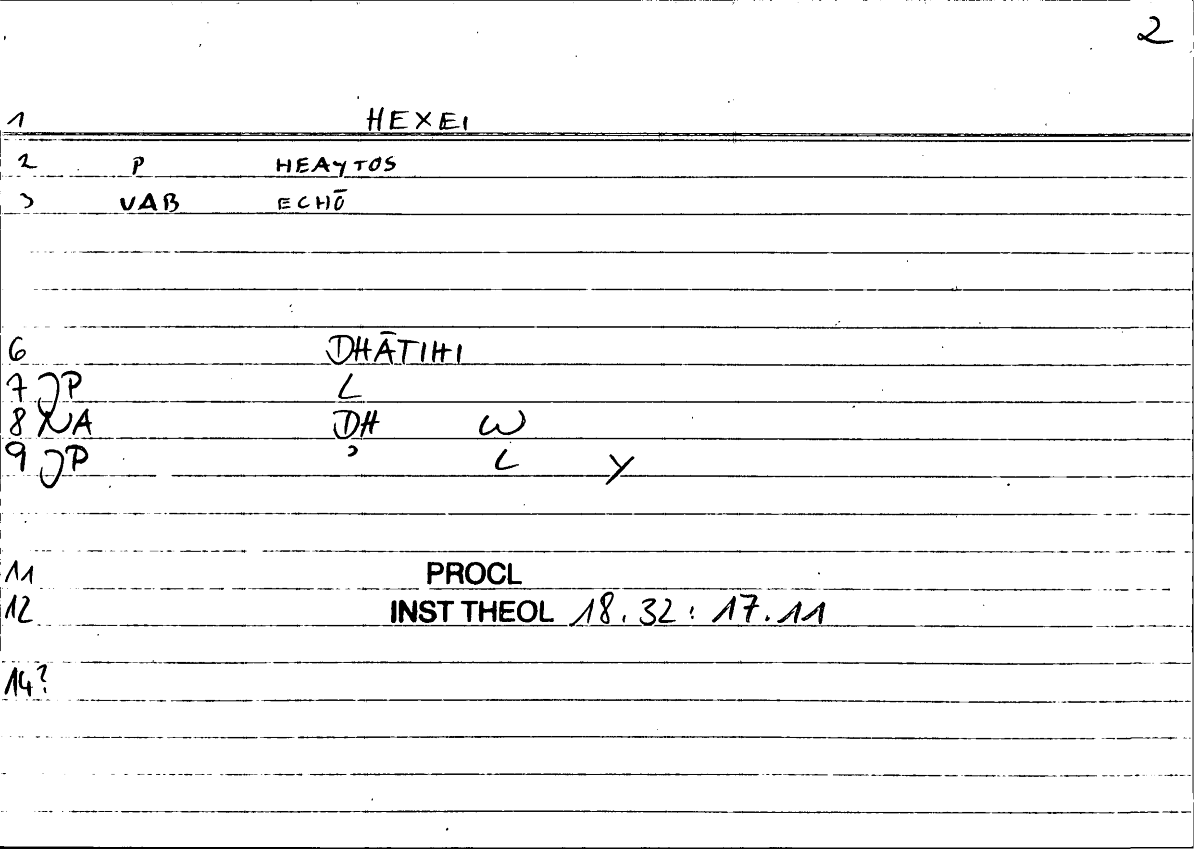 2
1 HEXEI
2 P HEAYTOS
3 VAB ECHŌ
6 DHĀTIHI
7 JP L
8 NA DH W
9 JP ʾ L Y
11 PROCL
12 INST THEOL 18.32:17.11
14?